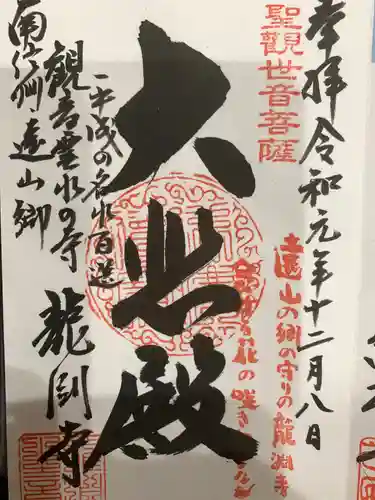 奉拝 令和元年十二月八日
聖觀世音菩薩
遠山の郷の守りの龍渕寺
大悲殿
平成の名水百選
観音霊水の寺 龍渕寺
南信州遠山郷